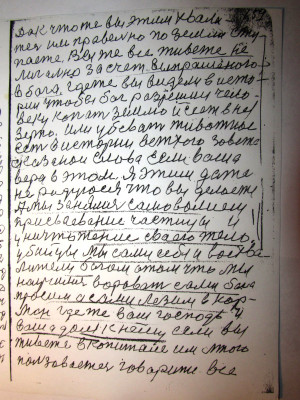 Дак что те вы этим хвали
тес им правелно по земли сту
паете. Вы же все живете не
легално за счет выпрашеного
в бога, где те вы видели в исто
рии чтобы бог разрешил чело
веку копат землю и сеет в неё
зерно, или убеват животное
ест в истории ветхого завета
сказаной слова если ваша
вера в этом. Я этим даже
не радуюся что вы делаете
Амы занимя самоволием
присваевание частицы и
уничтежение своего тело,
убийцы мы сами себя и
богом а том что мы
научилис вороват сами бога
просим а сами лезим в кар-
ман где же ваш господь и
ваша долг к нему если вы
живете в копитале им много
ползоваетес говарити все